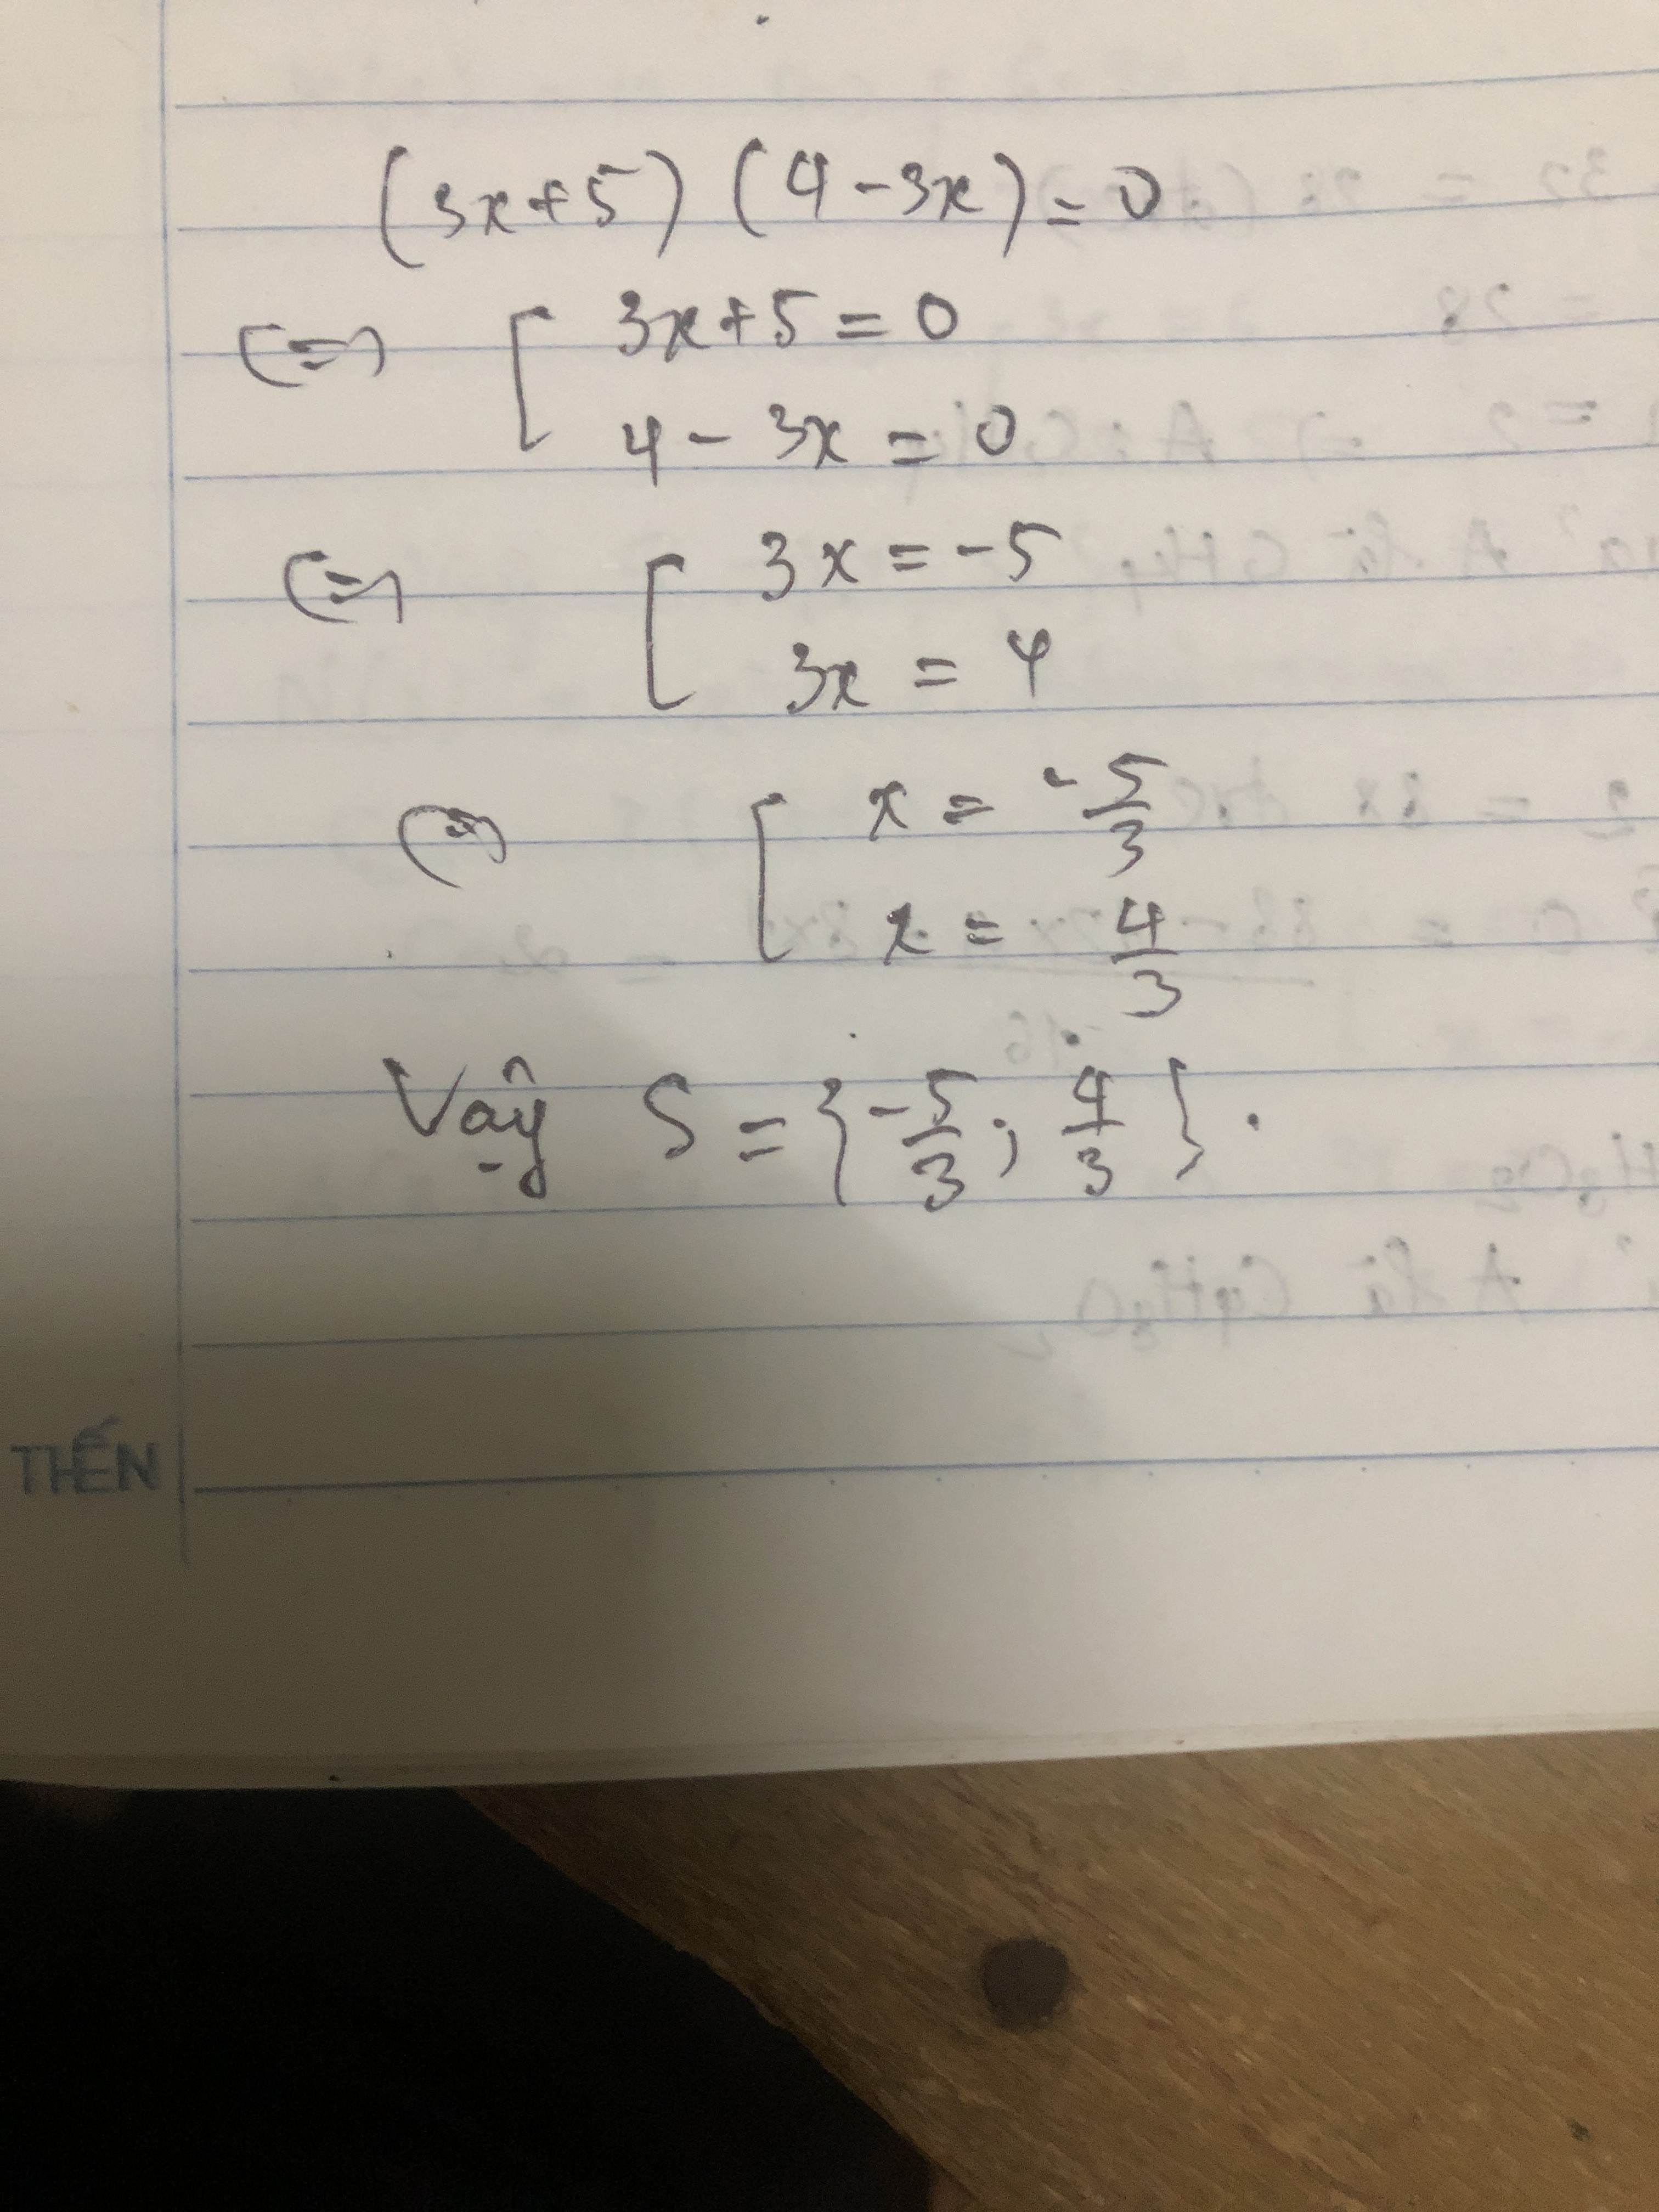 (3x+5) (4-3x) = 0
<=> [ 3x+5 = 0
4 - 3x = 0
<=> [ 3x = -5
3x = 4
<=> [ x = -5/3
x = 4/3
Vậy S = {-5/3; 4/3}.
TIẾN